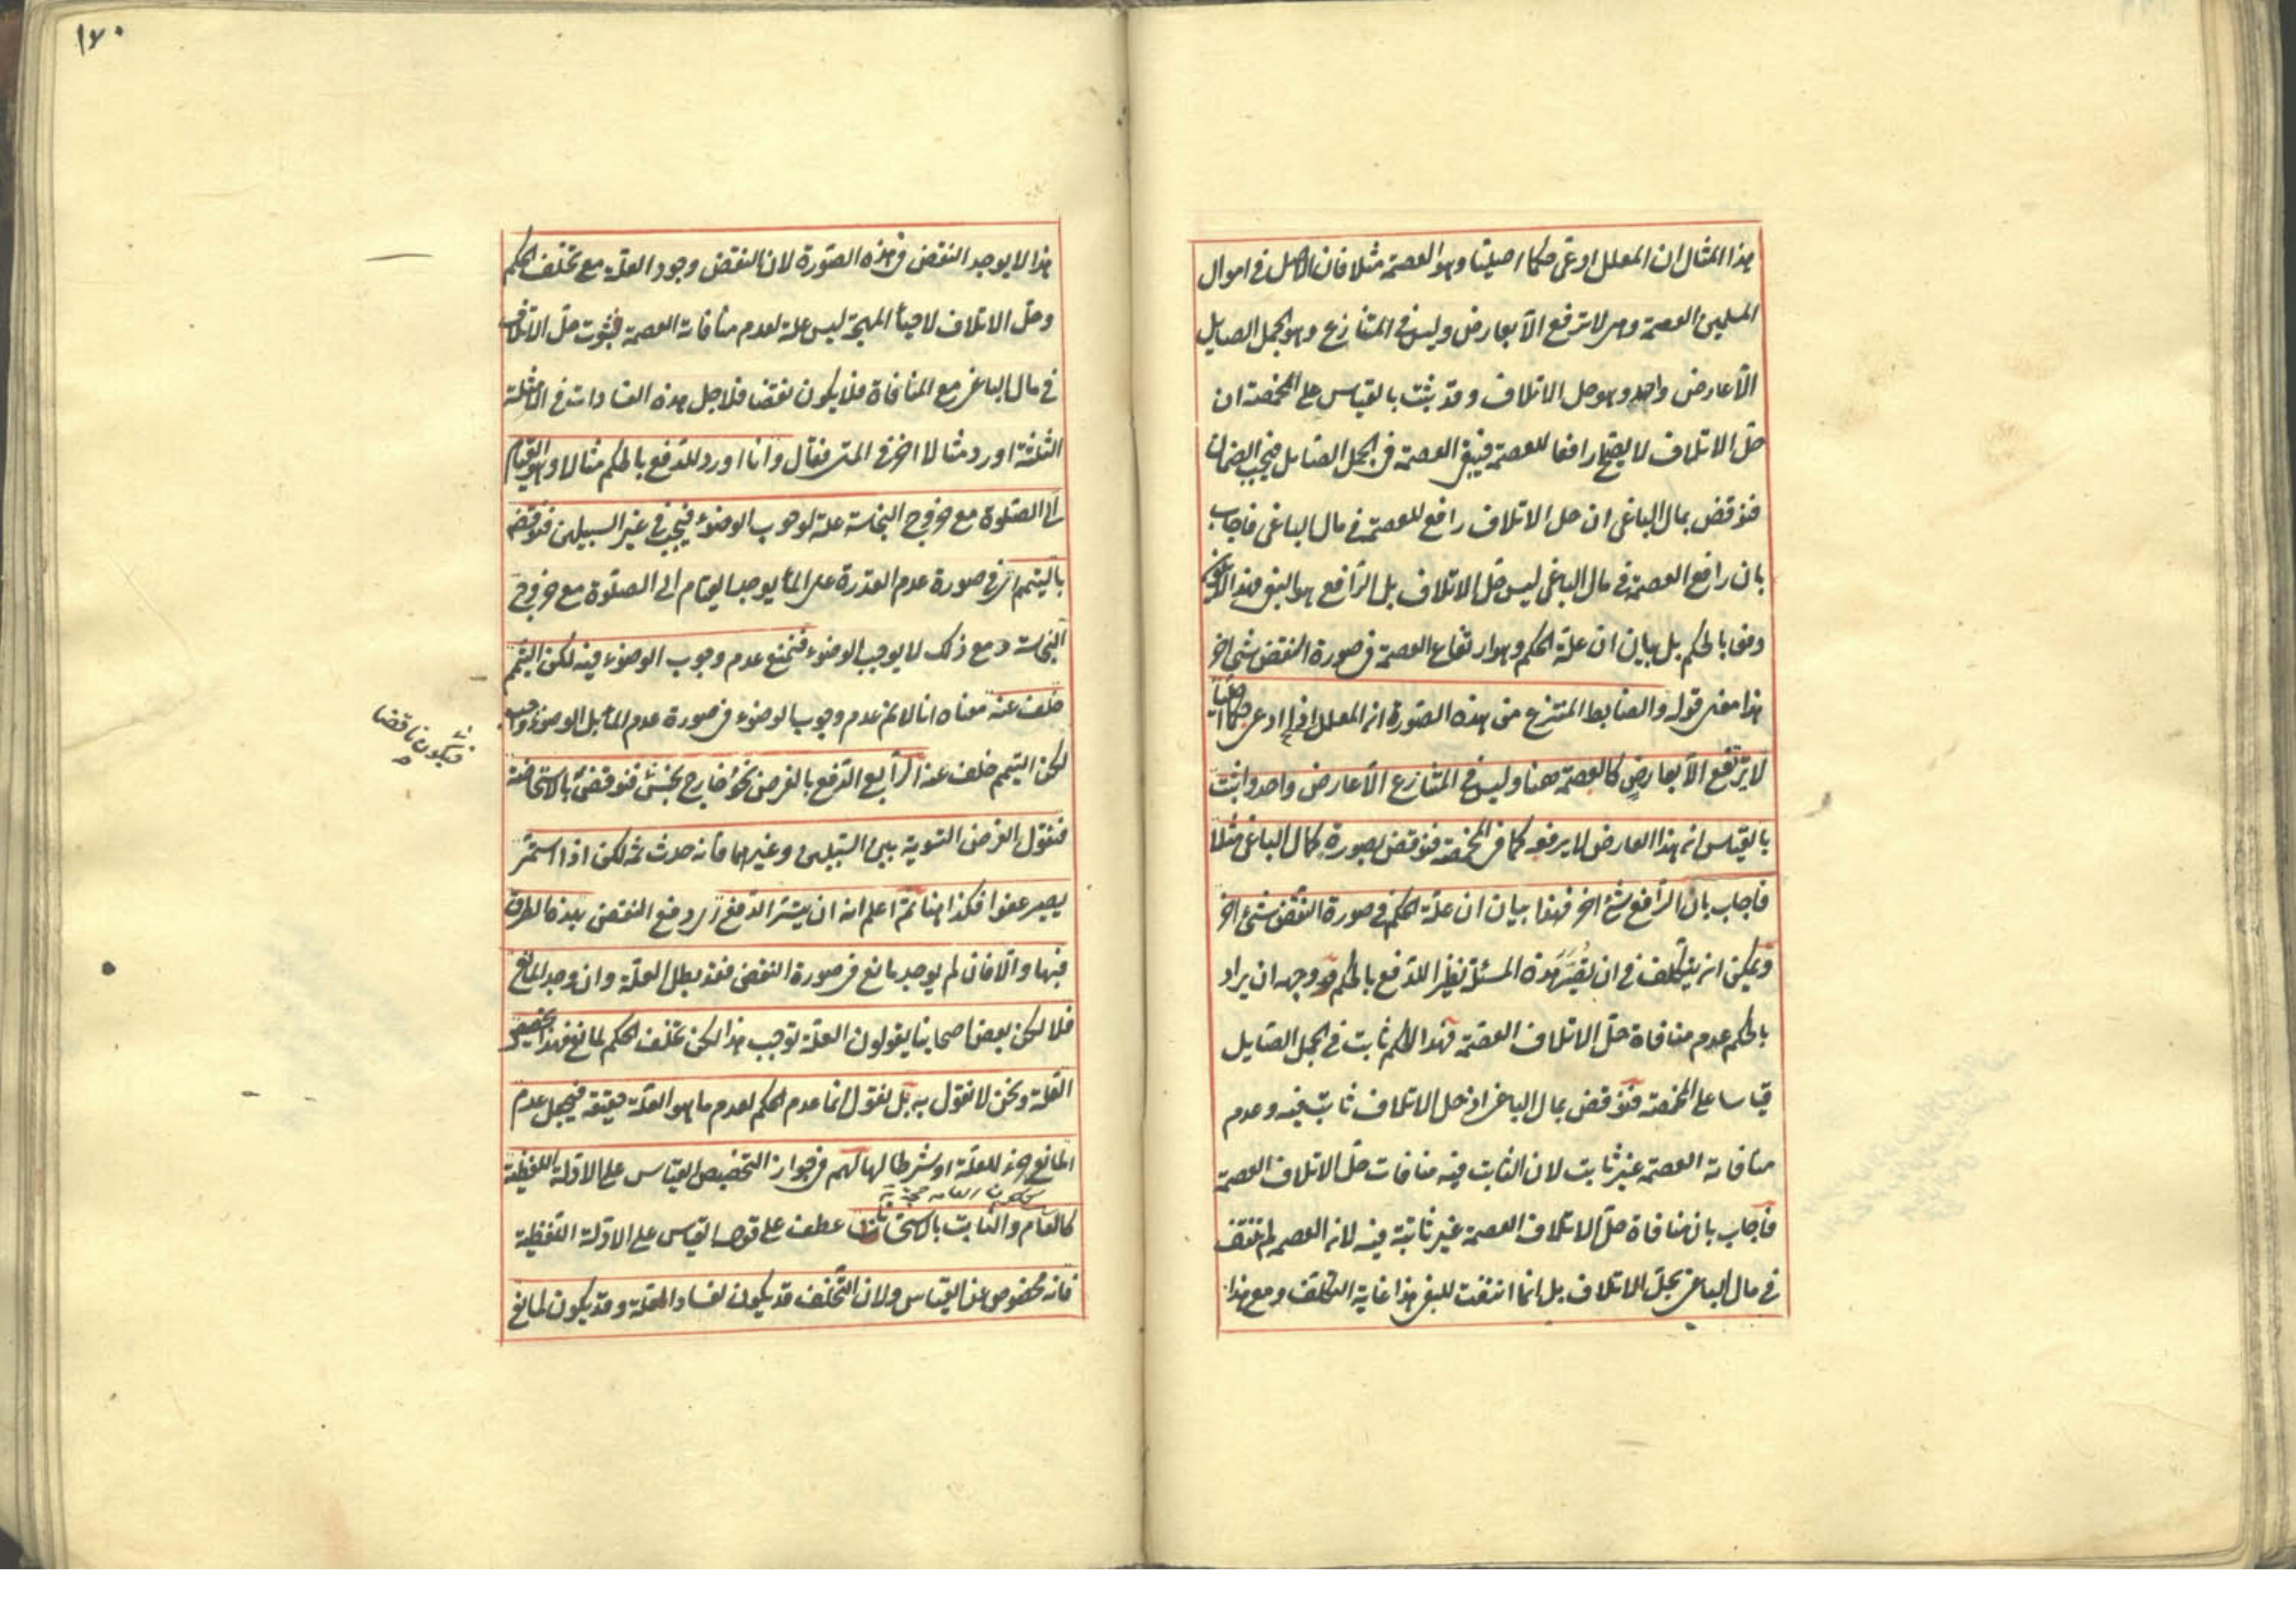 هذا المثال ان المعلل ادعى حكما اصليا وهو العصمة مثلا فان الاصل في اموال
المسلمين العصمة وهي لا ترفع الا بعارض وليس في المتنازع وهو الجمل الصايل
الا عارض واحد وهو حل الاتلاف وقد يثبت بالقياس على المخمصة ان
حل الاتلاف لا يصلح رافعا للعصمة فيبقى العصمة في الجمل الصايل فيجب الضمان
فنوقض بمال الباغي ان حل الاتلاف رافع للعصمة في مال الباغي فاجاب
بان رافع العصمة في مال الباغي ليس حل الاتلاف بل الرافع هو البغي فهذا لا يكون
دفعا بالحكم بل بيان ان علة الحكم وهو ارتفاع العصمة في صورة النقض شئ اخر
هذا معنى قوله والضابط المنتزع من هذه الصورة ان المعلل اذا ادعى حكما اصليا
لا يرتفع الا بعارض كالعصمة هنا وليس في المتنازع الا عارض واحد واثبت
بالقياس ان هذا العارض لا يرفعه كما في المخمصة فنوقض بصورة كمال الباغي مثلا
فاجاب بان الرافع شئ اخر فهذا بيان ان علة الحكم في صورة النقض شئ اخر
ويمكن ان يتكلف في ان يصير هذه المسئلة نظير اللدفع بالحكم ووجهه ان يراد
بالحكم عدم منافاة حل الاتلاف العصمة فهذا الحكم ثابت في الجمل الصايل
قياسا على المخمصة فنوقض بمال الباغي اذ حل الاتلاف ثابت فيه وعدم
منافاته العصمة غير ثابت لان الثابت فيه منافات حل الاتلاف العصمة
فاجاب بان منافاة حل الاتلاف العصمة غير ثابتة فيه لان العصمة لم تنتف
في مال الباغي بحل الاتلاف بل انما انتفت للبغي هذا غاية التكلف ومع هذا
١٧٠
هذا لا يوجد النقض في هذه الصورة لان النقض وجود العلة مع تخلف الحكم
وحل الاتلاف لاحياء المهجة ليس علة لعدم منافاته العصمة فثبوت حل الاتلاف
في مال الباغي مع المنافاة فلا يكون نقضا فلاجل هذه الفسادات في الامثلة
الثلثة اورد مثالا اخر في المتن فقال وانا اورد للدفع بالحكم مثالا وهو القيام
الى الصلوة مع خروج النجاسة علة لوجوب الوضوء فيجب في غير السبيلين فنوقض
بالتيمم اي في صورة عدم القدرة على الماء يوجد القيام الى الصلوة مع خروج
النجاسة ومع ذلك لا يوجب الوضوء فنمنع عدم وجوب الوضوء فيه لكن التيمم
خلف عنه معناه انا لانم عدم وجوب الوضوء في صورة عدم الماء بل الوضوء واجب
لكن التيمم خلف عنه الرابع الدفع بالغرض نحو خارج نجس فنوقض بالاستحاضة
فيكون ناقضا
فنقول الغرض التسوية بين السبيلين وغيرهما فانه حدث ثمه لكن اذا استمر
يصير عفوا فكذا هنا ثم اعلم انه ان يتيسر الدفع اي دفع النقض بهذه الطرق
فبها والا فان لم يوجد مانع في صورة النقض فقد بطل العلة وان وجد المانع
فلا لكن بعض اصحابنا يقولون العلة توجب هذا لكن تخلف الحكم لمانع فهذا تخصيص
العلة ونحن لا نقول به بل نقول انما عدم الحكم لعدم ما هو العلة حقيقة فيجعل عدم
المانع جزء للعلة او شرطا لها لهم في جواز التخصيص القياس على الادلة اللفظية
كالعام والثابت بالاستحسان عطف على قوله القياس على الادلة اللفظية
فانه مخصوص عن القياس ولان التخلف قد يكون لفساد العلة وقد يكون لمانع